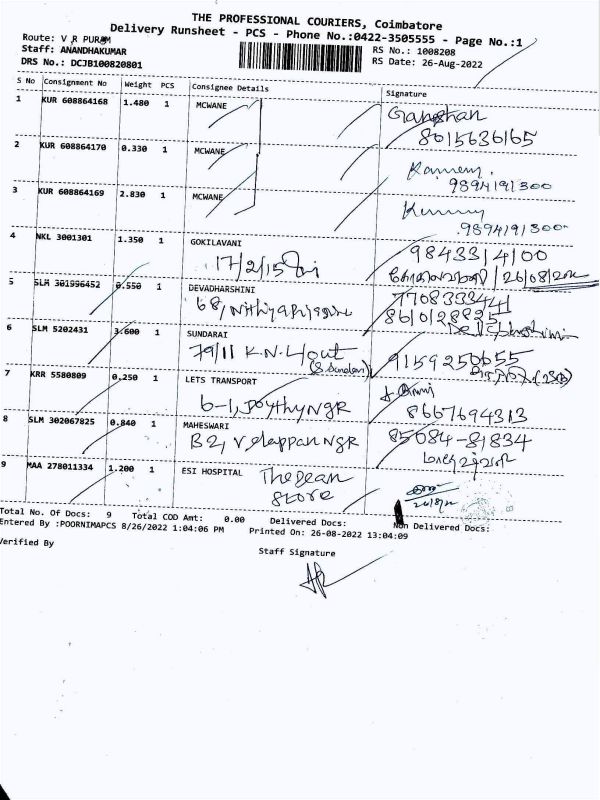 THE PROFESSIONAL COURIERS, Coimbatore
Delivery Runsheet - PCS - Phone No.:0422-3505555 - Page No.:1
Route: V R PURAM
RS No.: 1008208
Staff: ANANDHAKUMAR
RS Date: 26-Aug-2022
DRS No.: DCJB100820801
S No Consignment No Weight PCS Consignee Details Signature
1 KUR 608864168 1.480 1 MCWANE
8015636165
2 KUR 608864170 0.330 1 MCWANE
9894191300
3 KUR 608864169 2.830 1 MCWANE
9894191300
4 NKL 3001301 1.350 1 GOKILAVANI
17/2/15
9843314100
5 SLM 301996452 0.550 1 DEVADHARSHINI
68,
8610128825
6 SLM 5202431 3.600 1 SUNDARAI
79/11 K.N. L/out
9159250655
7 KRR 5580809 0.250 1 LETS TRANSPORT
6-1, NGR
8667694313
8 SLM 302067825 0.840 1 MAHESWARI
B2, Velappan NGR
85084-81834
9 MAA 278011334 1.200 1 ESI HOSPITAL The Dean
Store
26/8/22
Total No. Of Docs: 9 Total COD Amt: 0.00 Delivered Docs: Non Delivered Docs:
Entered By :POORNIMAPCS 8/26/2022 1:04:06 PM Printed On: 26-08-2022 13:04:09
Verified By
Staff Signature